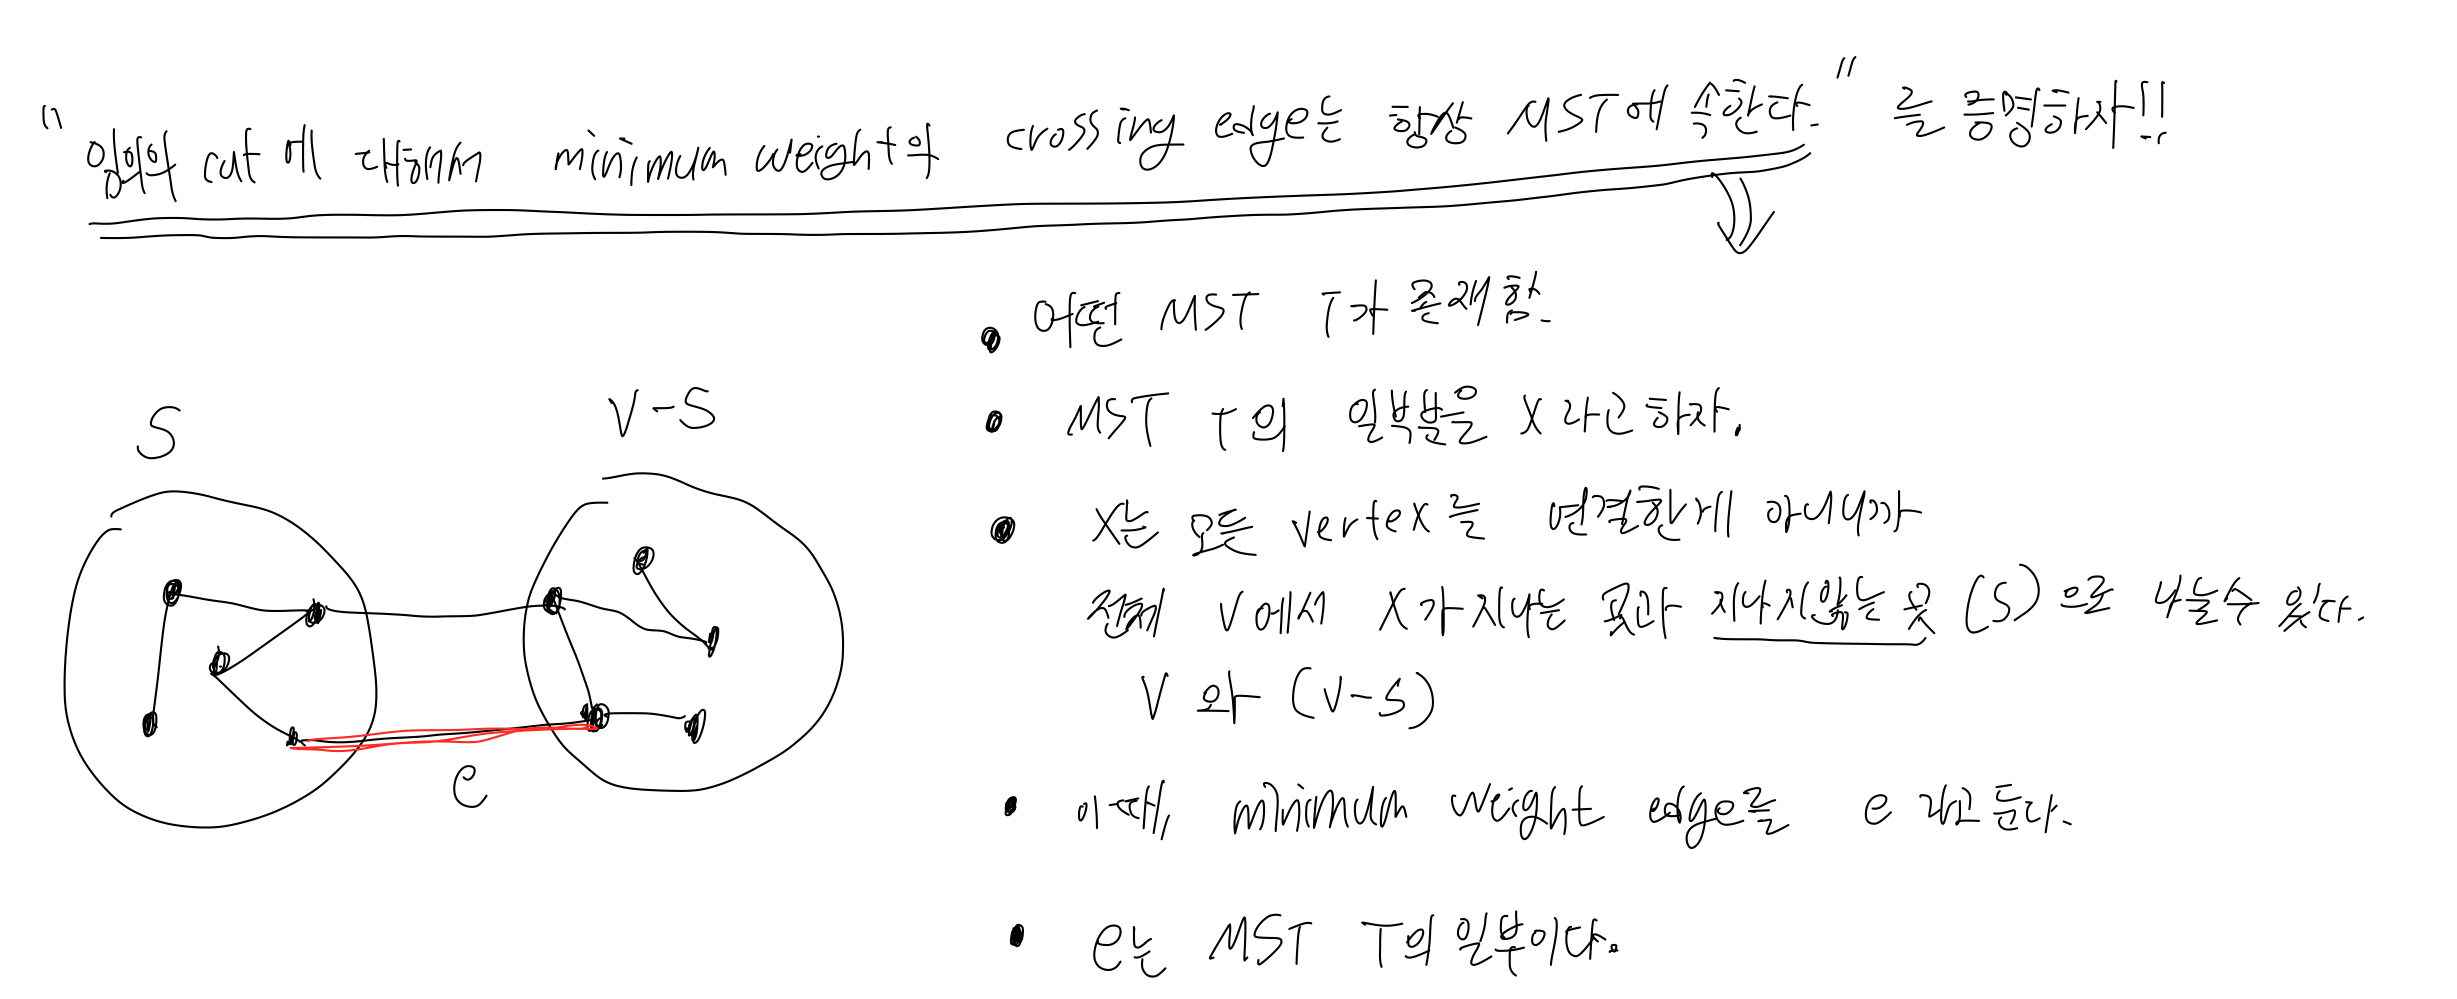 "임의의 cut에 대해서 minimum weight의 crossing edge는 항상 MST에 속한다." 를 증명하자!!
어떤 MST T가 존재함.
MST T의 일부분을 X라고하자.
X는 모든 vertex를 연결한게 아니니까
전체 V에서 X가 지나는 곳과 지나지않는 곳 (S)으로 나눌수 있다.
V와 (V-S)
이때, minimum weight edge를 e라고 둔다.
e는 MST T의 일부이다.
S
V-S
e